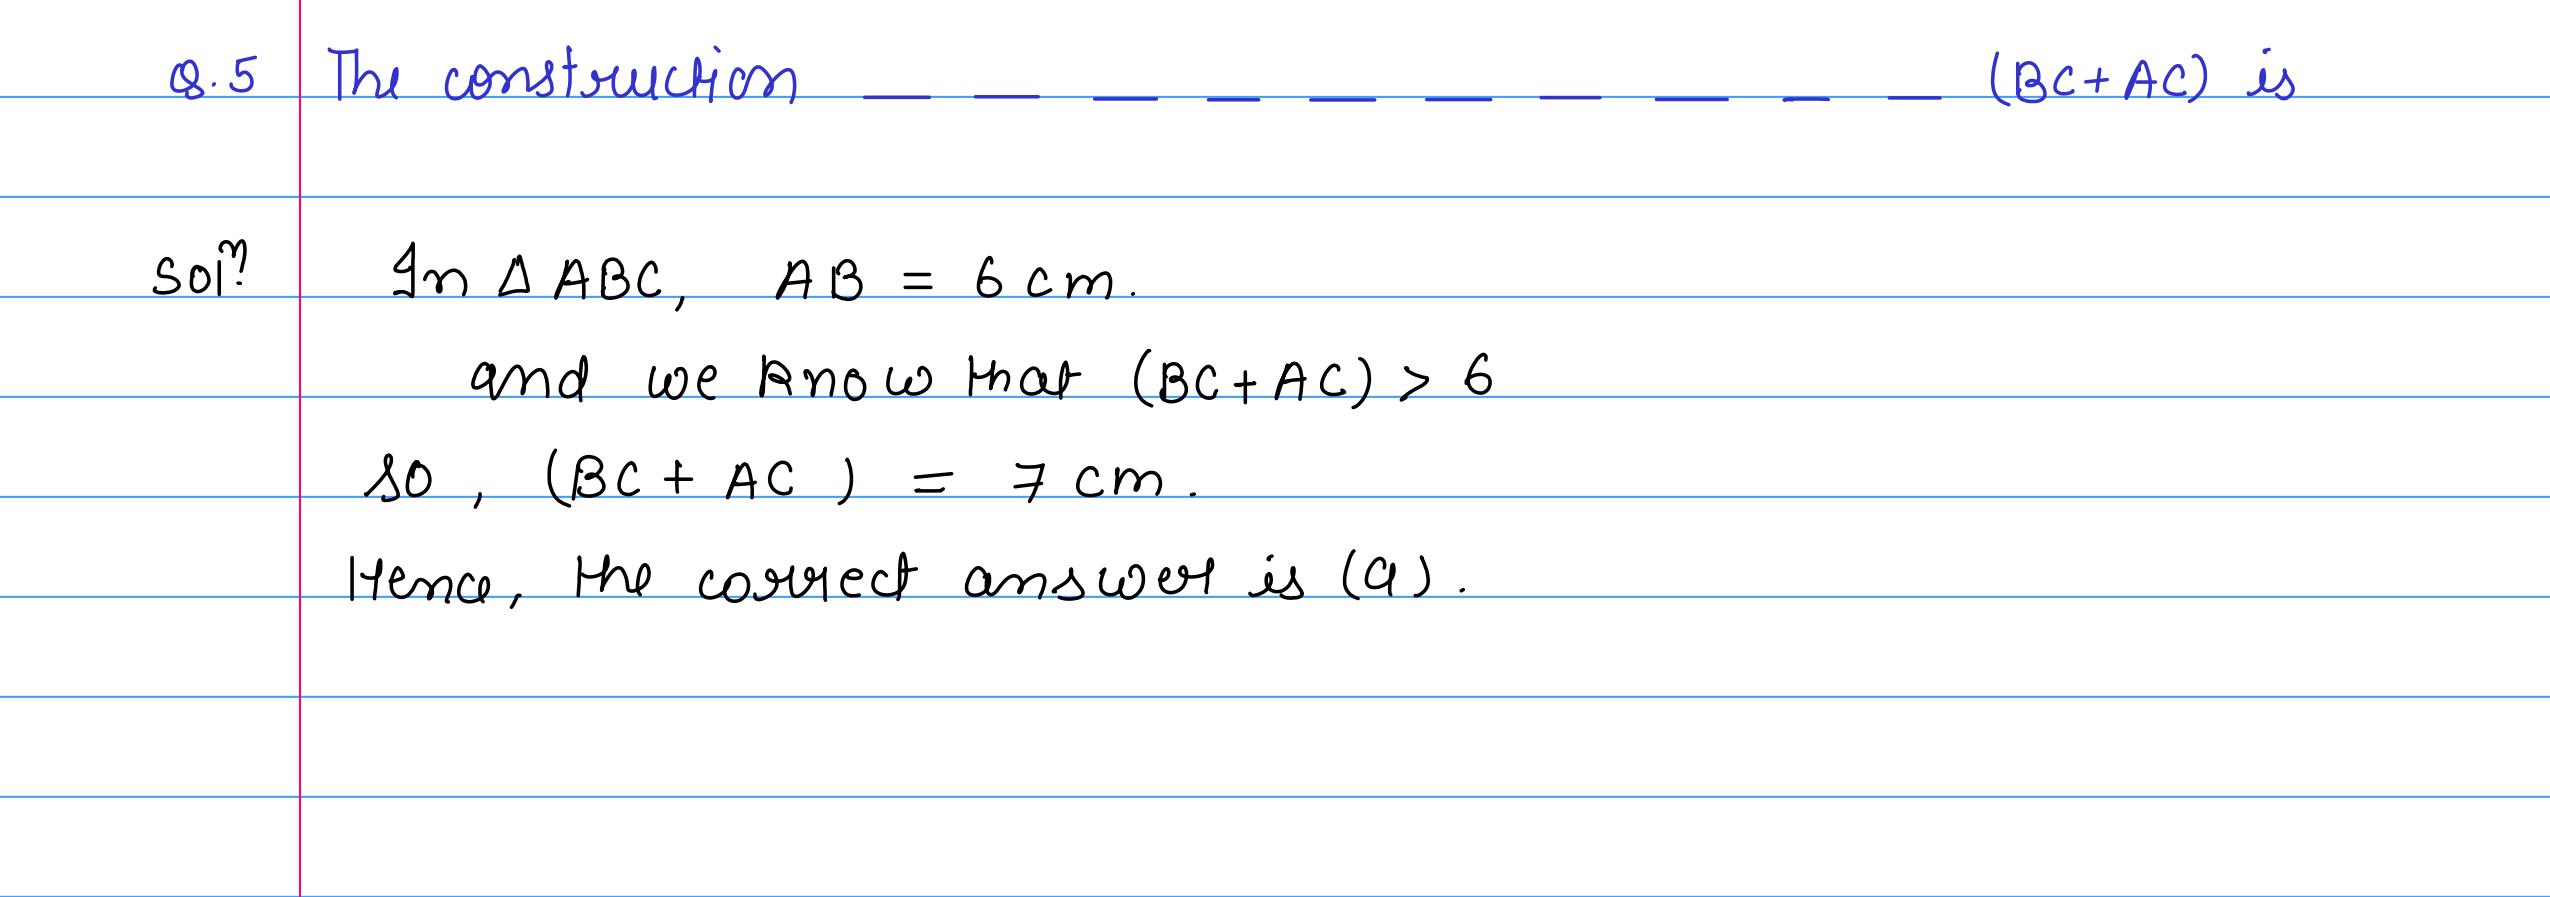 Q.5 The construction _ _ _ _ _ _ _ _ _ _ (BC+AC) is
Solⁿ. In Δ ABC, AB = 6 cm.
and we know that (BC+AC) > 6
So, (BC + AC) = 7 cm.
Hence, the correct answer is (a).